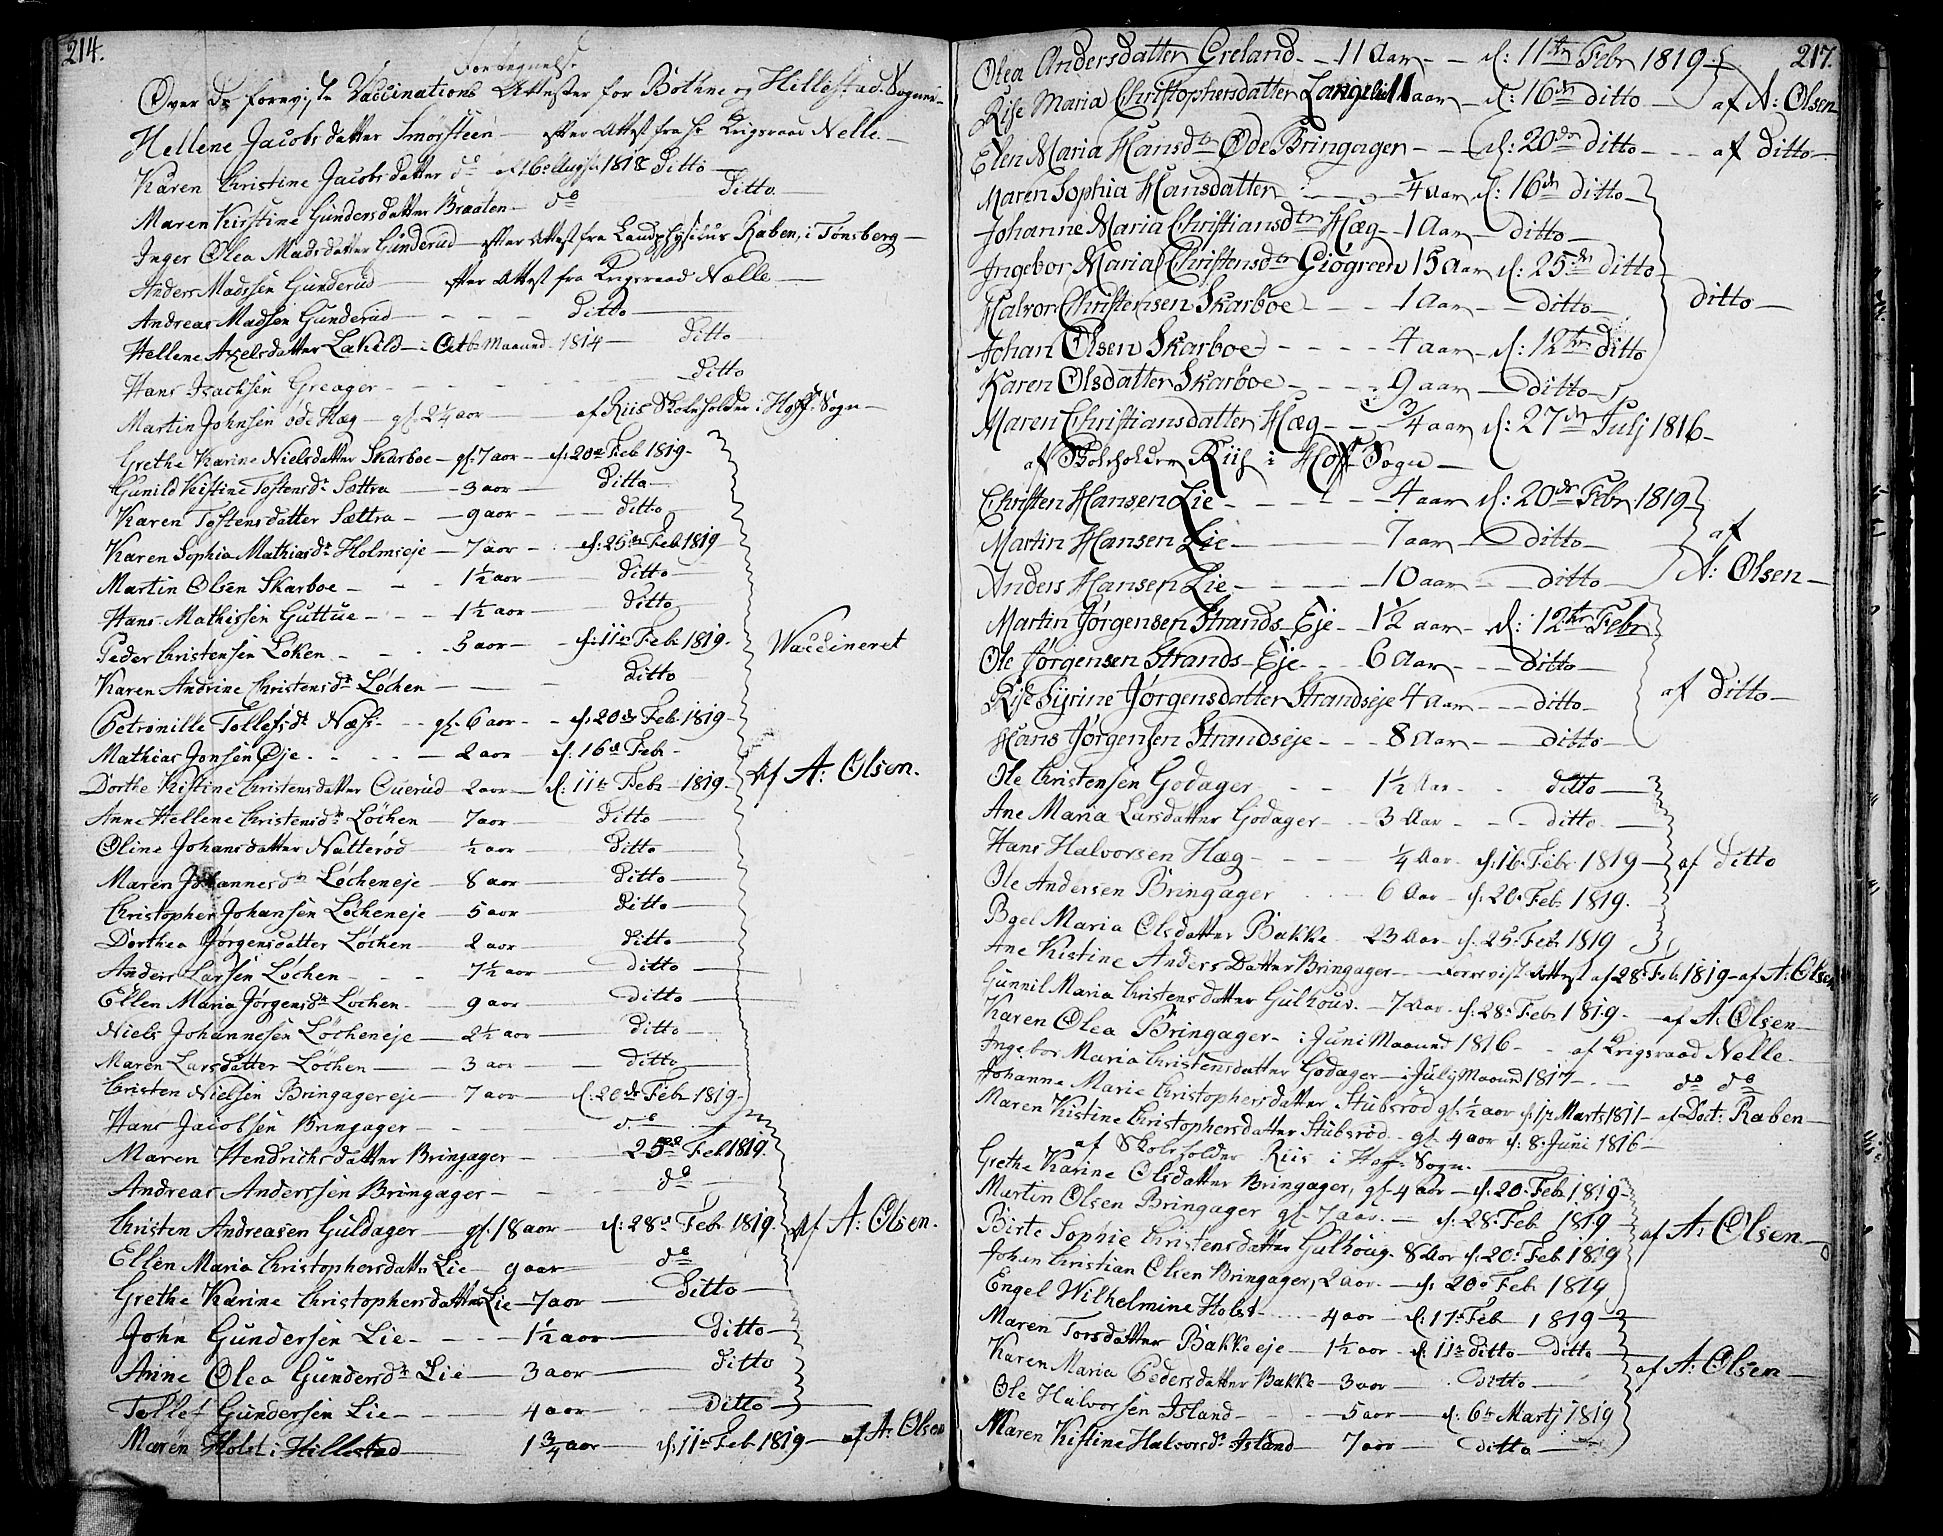 214.
Fortegnelse
Over de foreviste Vaccinations Attester for Bothne og Hillestad Sogne.
Hellene Jacobsdatter Smörsteen — efter Attest fra Hr Krigsraad Nelle —
Karen Christine Jacobsdatter do d 16 Augst 1818 Ditto —
Maren Kirstine Gundersdatter Braaten — do Ditto
Inger Olea Madsdatter Gunderud — efter Attest fra Landphysikus Raben, i Tønsberg —
Anders Madsen Gunderud — efter Attest fra Krigsraad Nelle —
Andreas Madsen Gunderud — Ditto —
Hellene Axelsdatter Lakild — i Octbr Maaned 1814 — Ditto
Hans Isachsen Greager — Ditto
Martin Johnsen ode Hæg — gl. 2¼ aar af Riis Skoleholder i Hoff Sogn —
Grethe Karine Nielsdatter Skarboe — gl. 7 aar — d: 20de Feb 1819 —
Gunild Kistine Tostensdr Sættra — 3 aar — Ditto
Karen Tostensdatter Sættra — 9 aar — ditto
Karen Sophia Mathiasdr Holmseje — 7 aar — d: 25de Feb 1819
Martin Olsen Skarboe — 1½ aar — Ditto
Hans Mathissen Guttue — 1½ aar — Ditto
Peder Christensen Löken — 5 aar — d: 11te Feb 1819. Waccineret
Karen Andrine Christensdr Løchen — ditto
Petronille Tollefsdr Næss — gl. 6 aar — d: 20de Feb 1819 —
Mathias Jonsen Øje — 2 aar — d: 16d Feb —
Dorthe Kistine Christensdatter Cuerud — 2 aar — d: 11te Feb — 1819 — Af A: Olsen.
Anne Hellene Christensdr Löchen — 7 aar — Ditto
Oline Johansdatter Natterød — ½ aar — Ditto
Maren Johannesdr Løcheneje — 8 aar — Ditto
Christopher Johansen Løcheneje — 5 aar — Ditto
Dorthea Jørgensdatter Løchen — 2 aar — Ditto
Anders Larsen Løchen — 7½ aar — ditto
Ellen Maria Jørgensdr Løchen — 9 aar — ditto
Niels Johannesen Løcheneje — 2½ aar — ditto
Maren Larsdatter Løchen — 3 aar — ditto
Christen Nielsen Bringagereje — 7 aar — d: 20de Feb 1819 —
Hans Jacobsen Bringager — do
Maren Hendrichsdatter Bringager — 25de Feb 1819.
Andreas Anderssen Bringager — do
Christen Andreasen Guldager — gl. 18 aar — d: 28d Feb 1819. Af A: Olsen.
Ellen Maria Christophersdatter Lie — 9 aar — do
Grethe Karine Christophersdatter Lie — 7 aar — Ditto —
John Gundersen Lie — 1½ aar — Ditto —
Anne Olea Gundersdr Lie — 3 aar — ditto
Tollef Gundersen Lie — 4 aar — Ditto —
Maren Holst i Hillestad 1¾ aar — d: 11te Feb 1819 — af A: Olsen
217.
Olea Andersdatter Greland — 11 Aar — d: 11te Febr 1819 —
Rise Maria Christophersdatter Langelid 1 aar — d: 16de ditto — af A: Olsen
Elen Maria Hansdr Øde Bringager — d: 20de ditto — af ditto —
Maren Sophia Hansdatter — ¼ Aar d: 16de ditto —
Johanne Maria Christiansdtr Hæg — 1 Aar — ditto —
Ingebor Maria Christensdtr Giøgreen 15 Aar d: 25de ditto —
Halvor Christensen Skarboe — 1 Aar — ditto — ditto —
Johan Olsen Skarboe — 4 aar — d: 12te ditto
Karen Olsdatter Skarboe — 9 aar — ditto —
Maren Christiansdatter Hæg — ¾ aar d: 27de Julj 1816 —
af Skoleholder Riis i Hoff Sogn —
Christen Hansen Lie — 4 aar d: 20de Febr: 1819
Martin Hansen Lie — 7 aar — ditto — af
Anders Hansen Lie — 10 aar — ditto — A: Olsen —
Martin Jørgensen Strands Eje — 1½ aar — d: 12te Febr
Ole Jørgensen Strands-Eje — 6 Aar — ditto —
Rise Sirine Jørgensdatter Strandseje 4 Aar — ditto — af ditto —
Hans Jørgensen Strandseje — 8 Aar — ditto —
Ole Christensen Godager 1½ Aar — ditto —
Ane Maria Larsdatter Godager — 3 Aar — ditto —
Hans Halvorsen Hæg — ¼ Aar d: 16 Febr 1819 — af ditto
Ole Andersen Bringager 6 Aar — d: 20 Feb: 1819.
Bgel Maria Olsdatter Bakke — 23 Aar — d: 25 Feb 1819
Ane Kistine Anders Datter Bringager — Forevist Attest af 28 Feb 1819 — af A: Olsen
Gunnil Maria Christensdatter Gulhoug — 7 Aar d: 28 Feb 1819 — af A: Olsen —
Karen Olea Bringager — i Juni Maaned 1816 — af Krigsraad Nelle —
Ingebor Maria Christensdatter Godager — i Julij Maaned 1817 — do do
Johanne Marie Christophersdatter Stubsrød gl. ½ aar d 12 Marts 1811 — af Doct: Raben —
Maren Kistine Christophersdatter Stubsrød — gl. 4 aar d. 8. Juni 1816 —
af Skoleholder Riis i Hoff Sogn.
Grethe Karine Olsdatter Bringager, gl. 4 aar — d: 20. Feb: 1819 —
Martin Olsen Bringager gl. 7 aar. — d: 28. Feb 1819 —
Birte Sophie Christensdatter Gulhoug — 8 Aar d: 20 Feb 1819 af A: Olsen —
Johan Christian Olsen Bringager, 2 aar — d: 20 Feb 1819
Engel Wilhelmine Holst — 4 aar — d: 17 Feb 1819 —
Maren Torsdatter Bakkeeje — 1½ aar — d: 11te ditto Ditto —
Karen Maria Pedersdatter Bakke — 3 aar — Ditto — af A: Olsen —
Ole Halvorsen Island — 5 aar — d: 6te Martj 1819
Maren Kistine Halvorsdr Island — 7 aar — ditto —